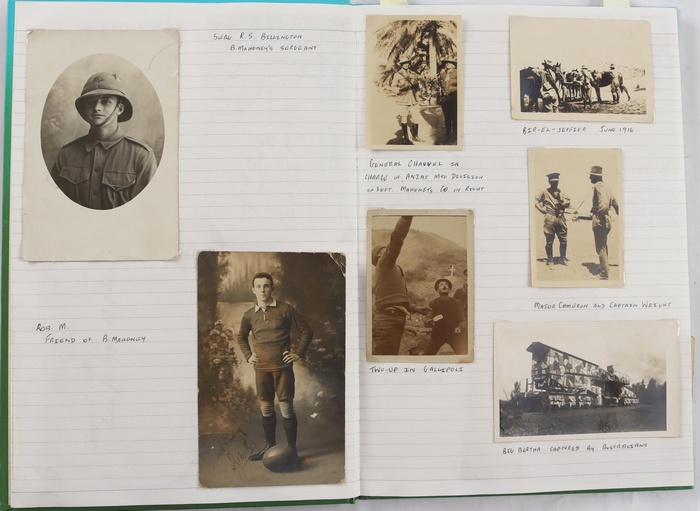 SERG. R.S. BILLINGTON
B. MAHONEY'S SERGEANT
ROB. M.
FRIEND OF B. MAHONEY
GENERAL CHAUVEL IN
CHARGE OF ANZAC MTD DIVISION
ON LEFT. MAHONEY'S CO IN RIGHT
TWO-UP IN GALLIPOLI
BIR-EL-JEFFIER JUNE 1916
MAJOR CAMERON AND CAPTAIN WRIGHT
BIG BERTHA CAPTURED BY AUSTRALIANS